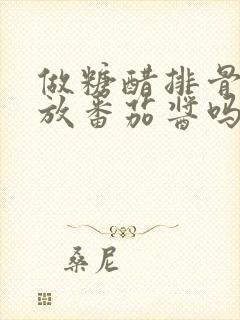 做糖醋排骨
放番茄酱吗
桑尼